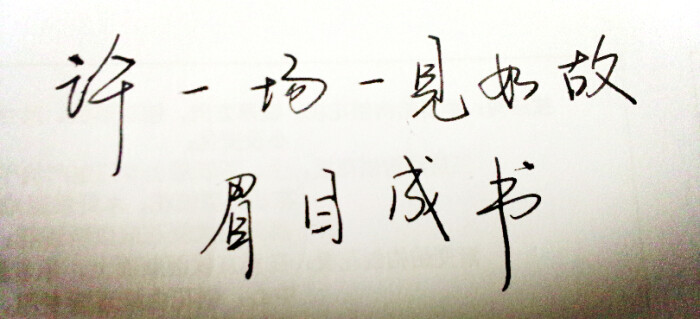 许一场一見如故
眉目成书